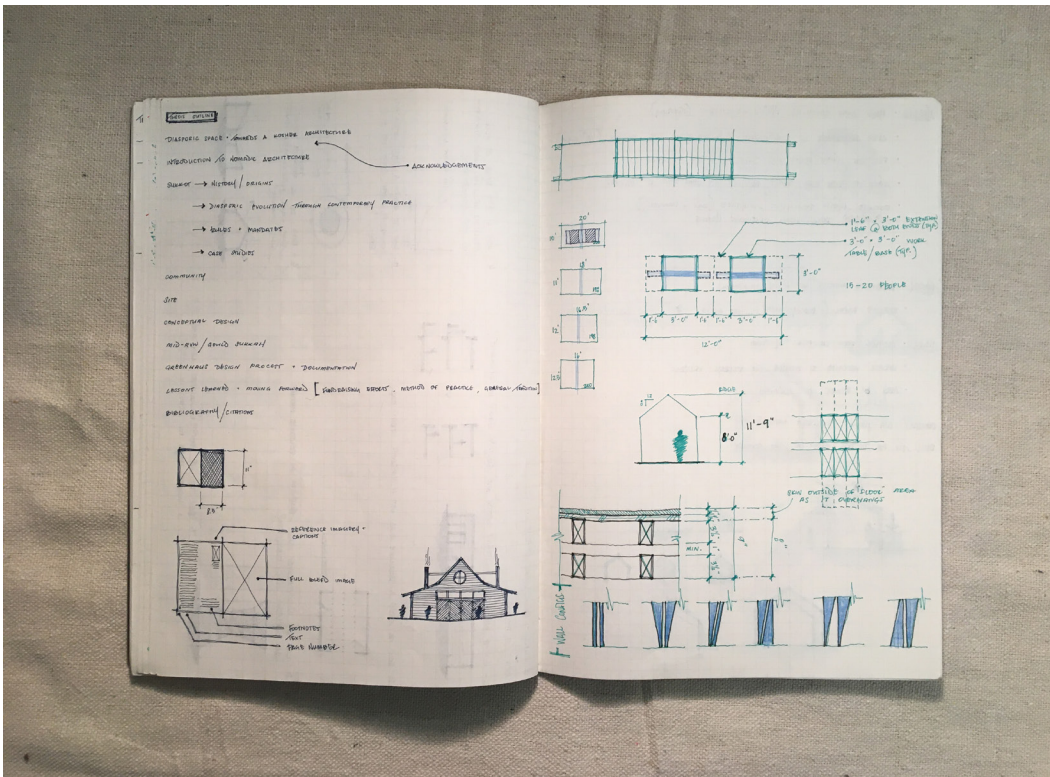 THESIS OUTLINE
DIASPORIC SPACE · TOWARDS A KOSHER ARCHITECTURE
ACKNOWLEDGEMENTS
INTRODUCTION TO NOMADIC ARCHITECTURE
→ HISTORY / ORIGINS
→ DIASPORIC EVOLUTION THROUGH CONTEMPORARY PRACTICE
→ RULES + MANDATES
→ CASE STUDIES
COMMUNITY
SITE
CONCEPTUAL DESIGN
MID-RVW / BUILD SUKKAH
GREENHAUS DESIGN PROCESS + DOCUMENTATION
LESSONS LEARNED + MOVING FORWARD [FUNDRAISING EFFORTS, METHOD OF PRACTICE,
BIBLIOGRAPHY / CITATIONS
11"
8.5"
REFERENCE IMAGERY +
CAPTIONS
FULL BLEED IMAGE
FOOTNOTES
TEXT
PAGE NUMBER
20'
1'-6" × 3'-0" EXTENSION
LEAF @ BOTH ENDS (TYP.)
3'-0" × 3'-0" WORK
TABLE/BASE (TYP.)
3'-0"
15-20 PEOPLE
11'
16.5'
12'
1'-6" 3'-0" 1'-6" 1'-6" 3'-0" 1'-6"
12'-0"
RIDGE
12
8'-0"
11'-9"
OUTSIDE OF "FLOOR" AREA
AS IT OVERHANGS
MIN.
WALL